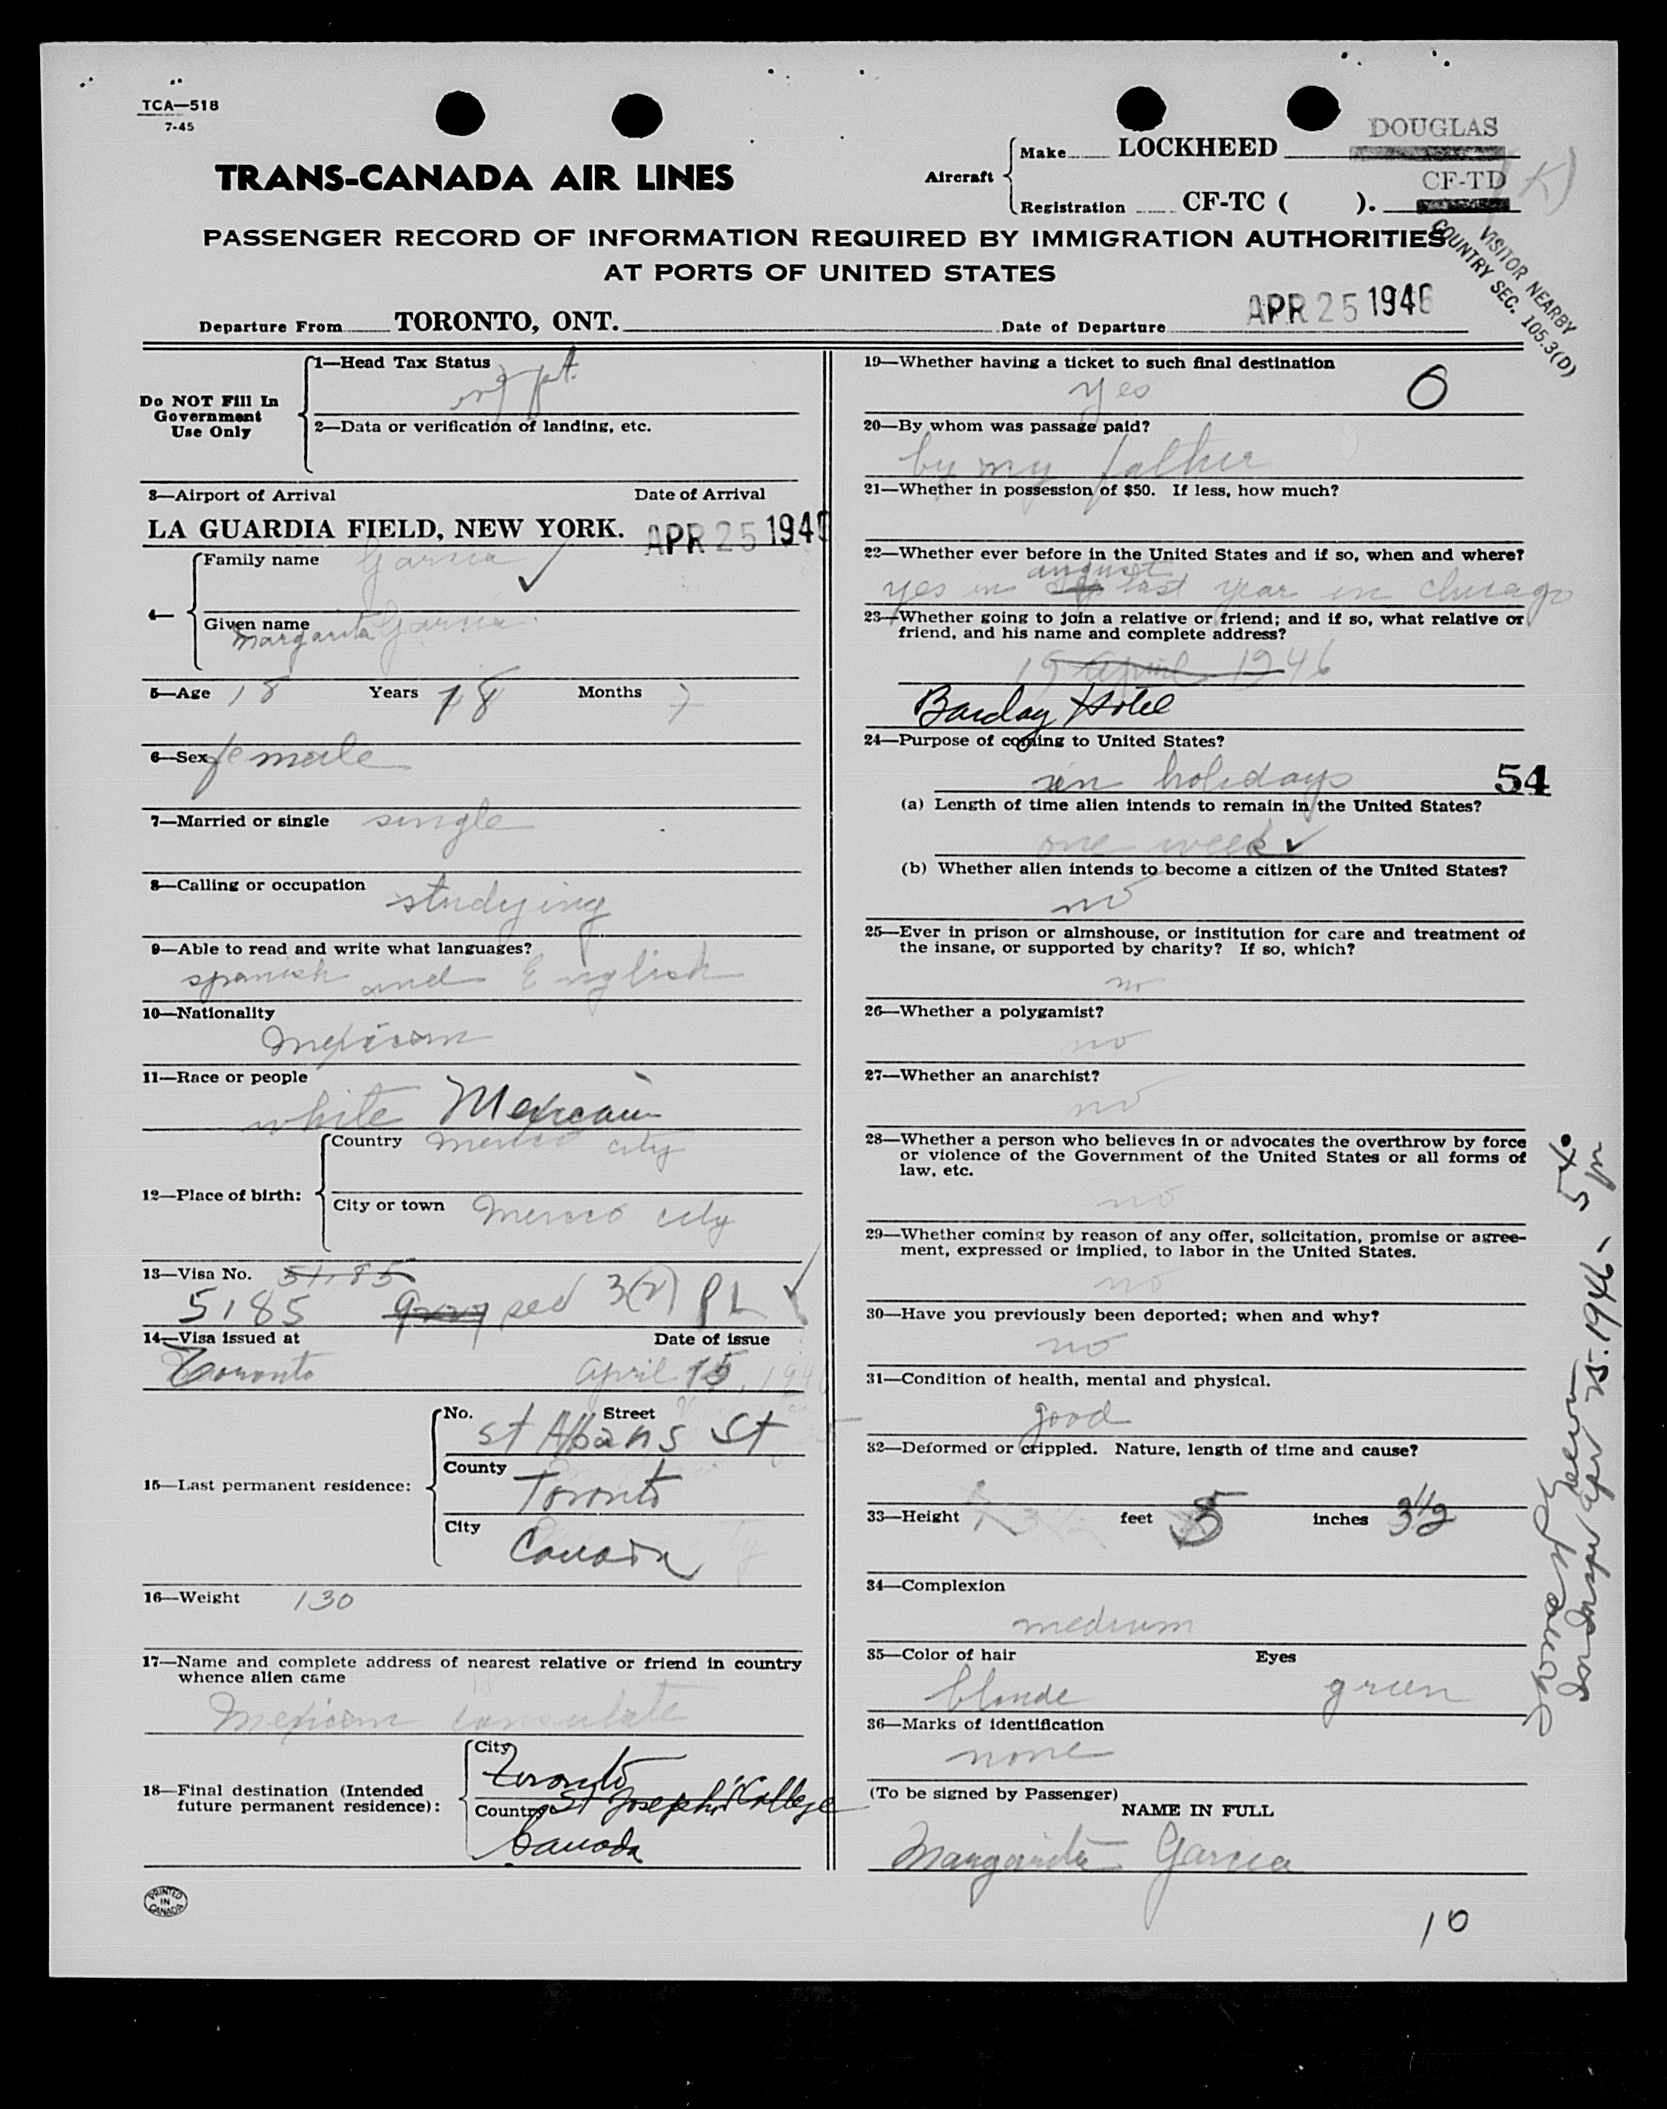 TCA—518
7-45
DOUGLAS
Aircraft
Make LOCKHEED
CF-TD (K)
Registration CF-TC ( ).
TRANS-CANADA AIR LINES
PASSENGER RECORD OF INFORMATION REQUIRED BY IMMIGRATION AUTHORITIES
AT PORTS OF UNITED STATES
VISITOR NEARBY
COUNTRY SEC. 105.3(D)
Departure From TORONTO, ONT. Date of Departure APR 25 1946
Do NOT Fill In
Government
Use Only
1—Head Tax Status
2—Data or verification of landing, etc.
3—Airport of Arrival Date of Arrival
LA GUARDIA FIELD, NEW YORK. APR 25 194
4—
Family name Garcia
Given name Garcia
Margarita
5—Age 18 Years 18 Months 7
6—Sex female
7—Married or single single
8—Calling or occupation studying
9—Able to read and write what languages?
spanish and English
10—Nationality
Mexican
11—Race or people
white Mexican
12—Place of birth:
Country Mexico city
City or town Mexico city
13—Visa No. 5185
5185 sec 3(2) PL
14—Visa issued at Date of issue
Toronto April 15, 194
15—Last permanent residence:
No. Street
St Albans St
County Toronto
City Canada
16—Weight 130
17—Name and complete address of nearest relative or friend in country
whence alien came
Mexican consulate
18—Final destination (Intended
future permanent residence):
City
Toronto
Country St Joseph's College
Canada
PRINTED
IN
CANADA
19—Whether having a ticket to such final destination
yes 0
20—By whom was passage paid?
by my father
21—Whether in possession of $50. If less, how much?
22—Whether ever before in the United States and if so, when and where?
august
yes in last year in chicago
23—Whether going to join a relative or friend; and if so, what relative or
friend, and his name and complete address?
19 April 1946
Barclay Hotel
24—Purpose of coming to United States?
in holidays 54
(a) Length of time alien intends to remain in the United States?
one week
(b) Whether alien intends to become a citizen of the United States?
no
25—Ever in prison or almshouse, or institution for care and treatment of
the insane, or supported by charity? If so, which?
no
26—Whether a polygamist?
no
27—Whether an anarchist?
no
28—Whether a person who believes in or advocates the overthrow by force
or violence of the Government of the United States or all forms of
law, etc.
no
29—Whether coming by reason of any offer, solicitation, promise or agree-
ment, expressed or implied, to labor in the United States.
no
30—Have you previously been deported; when and why?
no
31—Condition of health, mental and physical.
good
32—Deformed or crippled. Nature, length of time and cause?
33—Height feet 5 inches 3 1/2
34—Complexion
medium
35—Color of hair Eyes
blonde green
36—Marks of identification
none
(To be signed by Passenger)
NAME IN FULL
Margarita Garcia
10
Apr 25-1946- 5 40
pm